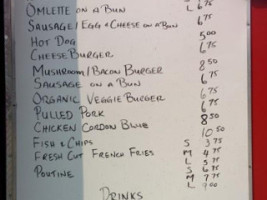 OMLETTE ON A BUN 6.75
L 6.75
SAUSAGE/EGG & CHEESE ON A BUN
HOT DOG 5.00
CHEESE BURGER 6.75
MUSHROOM/BACON BURGER 8.50
SAUSAGE ON A BUN 6.75
ORGANIC VEGGIE BURGER 6.75
PULLED PORK 8.50
CHICKEN CORDON BLUE 10.50
FISH & CHIPS
FRESH CUT FRENCH FRIES S 3.75
M 4.75
L 5.75
POUTINE S 6.75
M 7.75
L 9.00
DRINKS